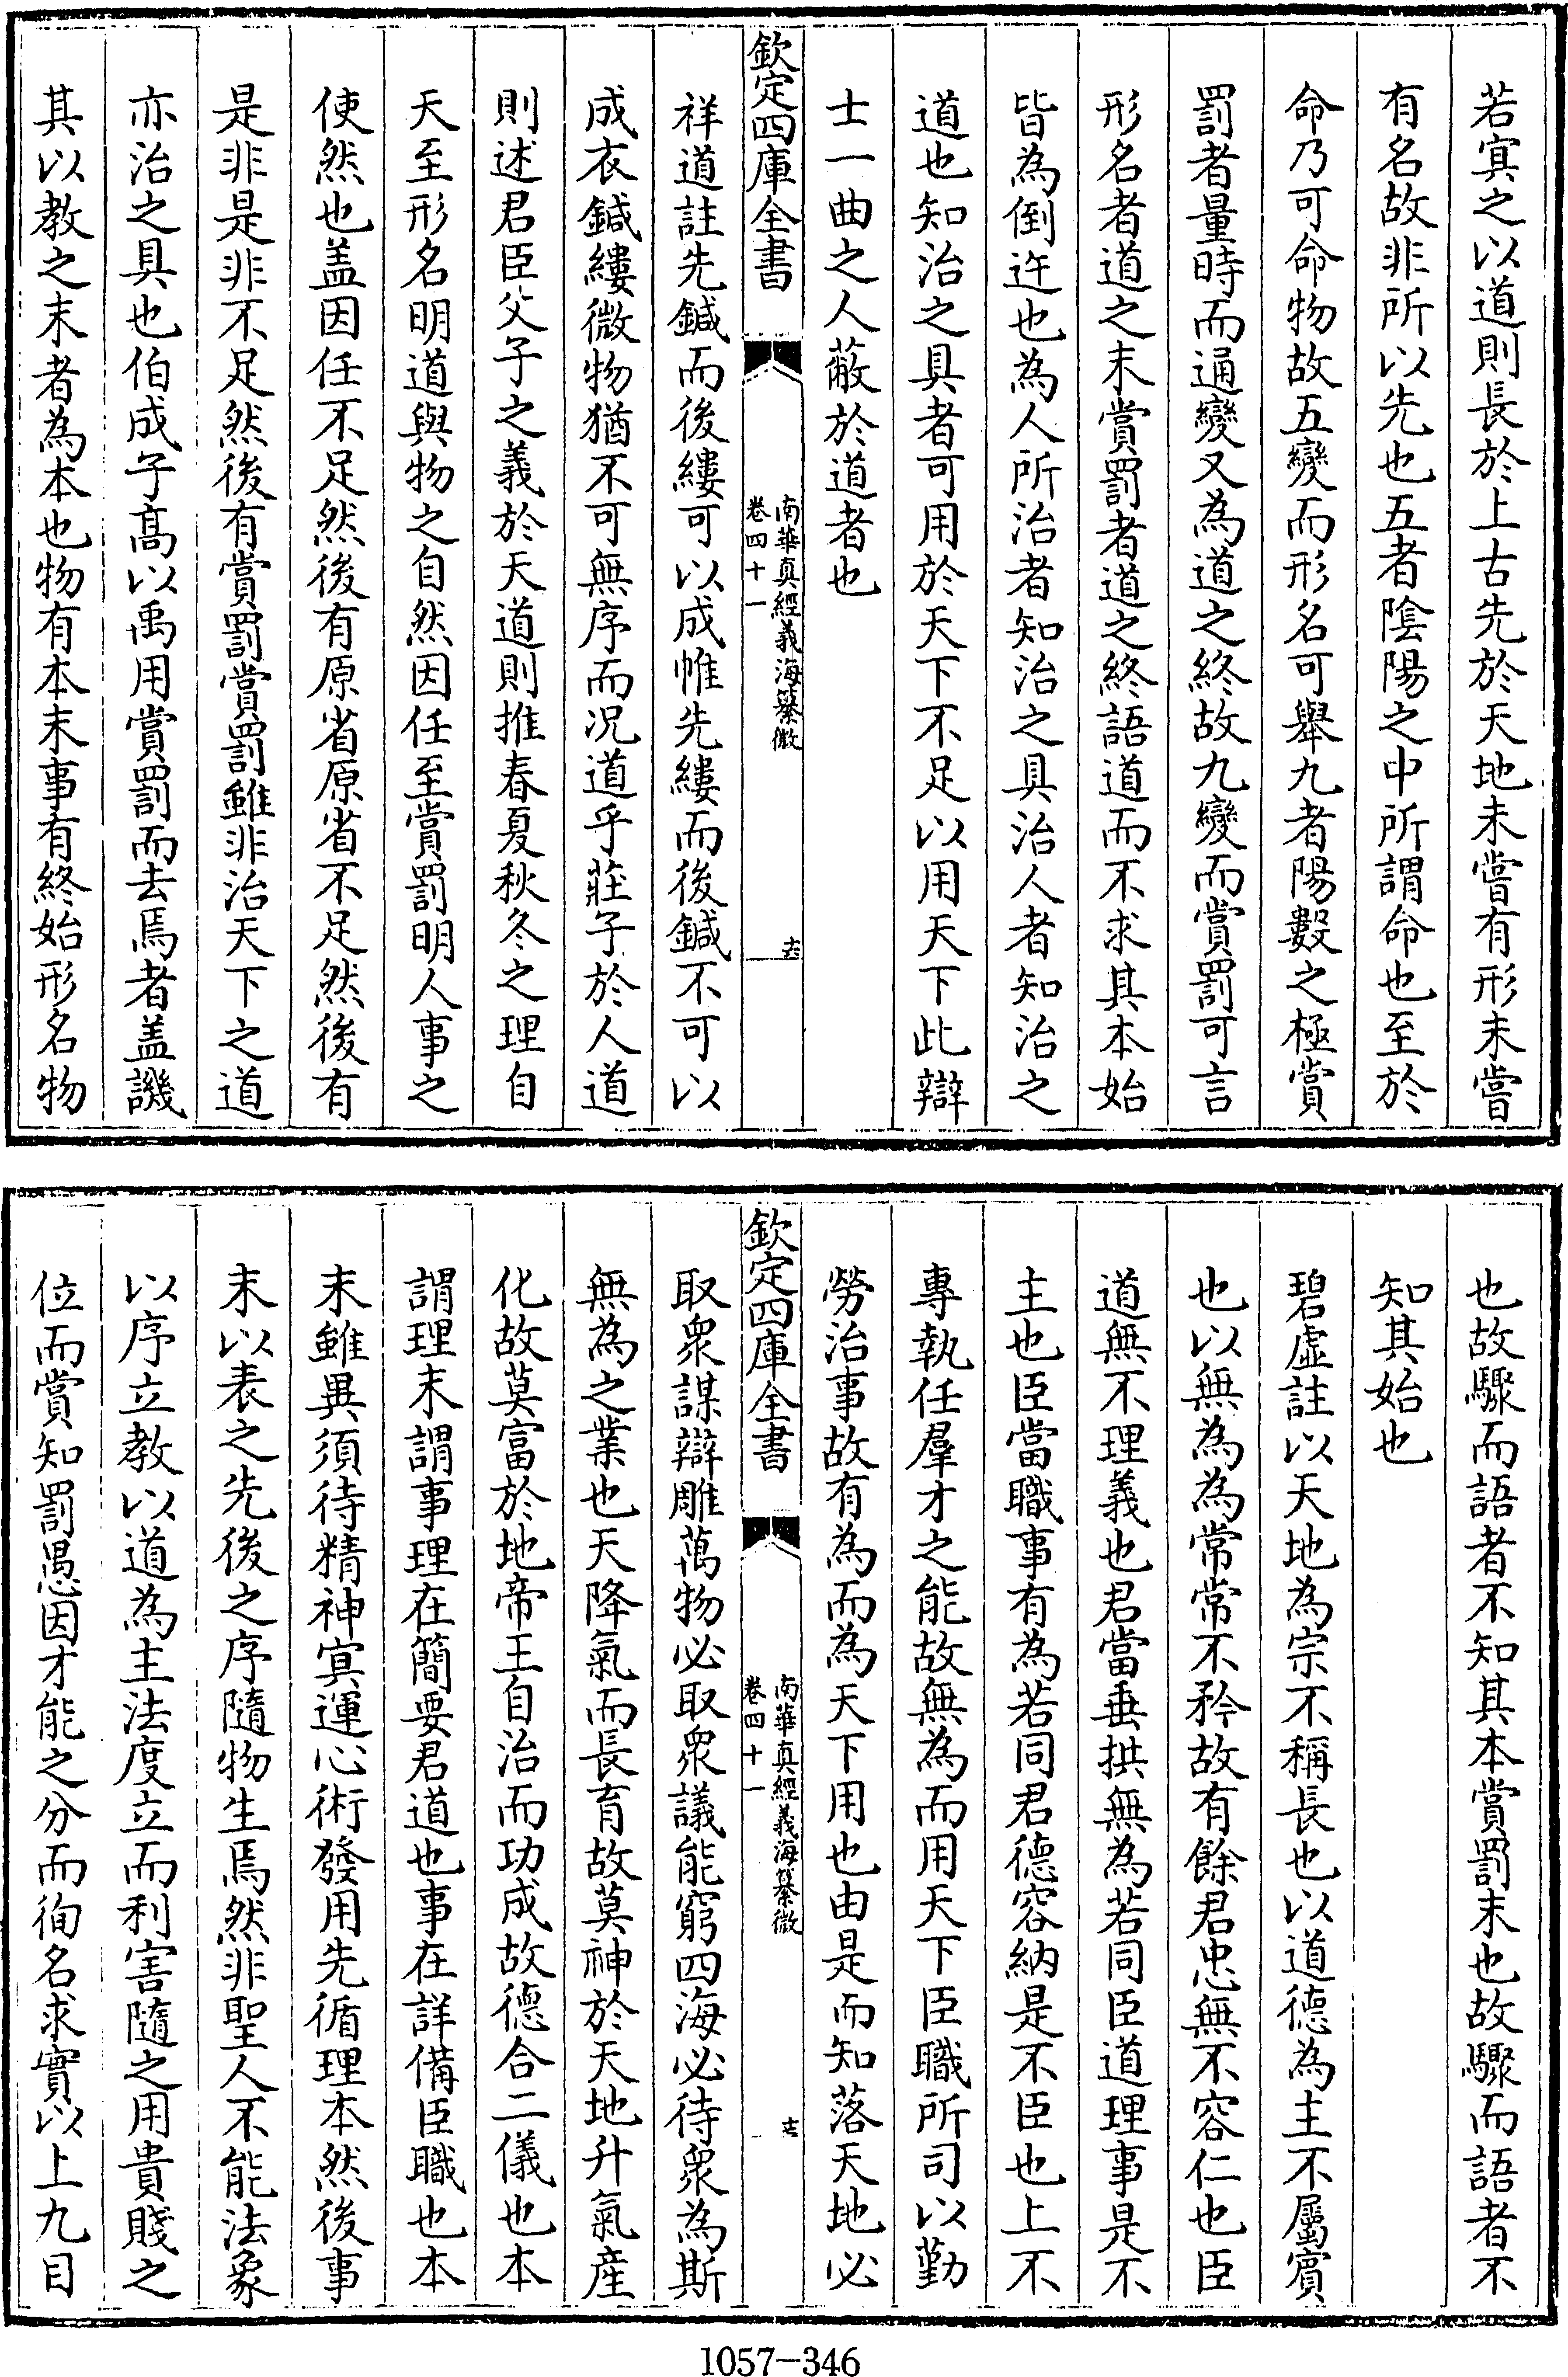 若寘之以道則長於上古先於天地未嘗有形未嘗
有名故非所以先也五者陰陽之中所謂命也至於
命乃可命物故五變而形名可舉九者陽數之極賞
罰者量時而通變又為道之終故九變而賞罰可言
形名者道之末賞罰者道之終語道而不求其本始
皆為倒迕也為人所治者知治之具治人者知治之
道也知治之具者可用於天下不足以用天下此辯
士一曲之人蔽於道者也
欽定四庫全書
南華真經義海纂微
卷四十一
十六
祥道註先鍼而後縷可以成帷先縷而後鍼不可以
成衣鍼縷微物猶不可無序而况道乎莊子於人道
則述君臣父子之義於天道則推春夏秋冬之理自
天至形名明道與物之自然因任至賞罰明人事之
使然也盖因任不足然後有原省原省不足然後有
是非是非不足然後有賞罰賞罰雖非治天下之道
亦治之具也伯成子髙以禹用賞罰而去焉者盖譏
其以教之末者為本也物有本末事有終始形名物
也故驟而語者不知其本賞罰末也故驟而語者不
知其始也
碧虛註以天地為宗不稱長也以道德為主不屬賓
也以無為為常常不矜故有餘君忠無不容仁也臣
道無不理義也君當垂拱無為若同臣道理事是不
主也臣當職事有為若同君德容納是不臣也上不
專執任羣才之能故無為而用天下臣職所司以勤
勞治事故有為而為天下用也由是而知落天地必
欽定四庫全書
南華真經義海纂微
卷四十一
十七
取衆謀辯雕萬物必取衆議能窮四海必待衆為斯
無為之業也天降氣而長育故莫神於天地升氣產
化故莫富於地帝王自治而功成故德合二儀也本
謂理末謂事理在簡要君道也事在詳備臣職也本
末雖異須待精神寘運心術發用先循理本然後事
末以表之先後之序隨物生焉然非聖人不能法象
以序立教以道為主法度立而利害隨之用貴賤之
位而賞知罰愚因才能之分而徇名求實以上九目
1057-346